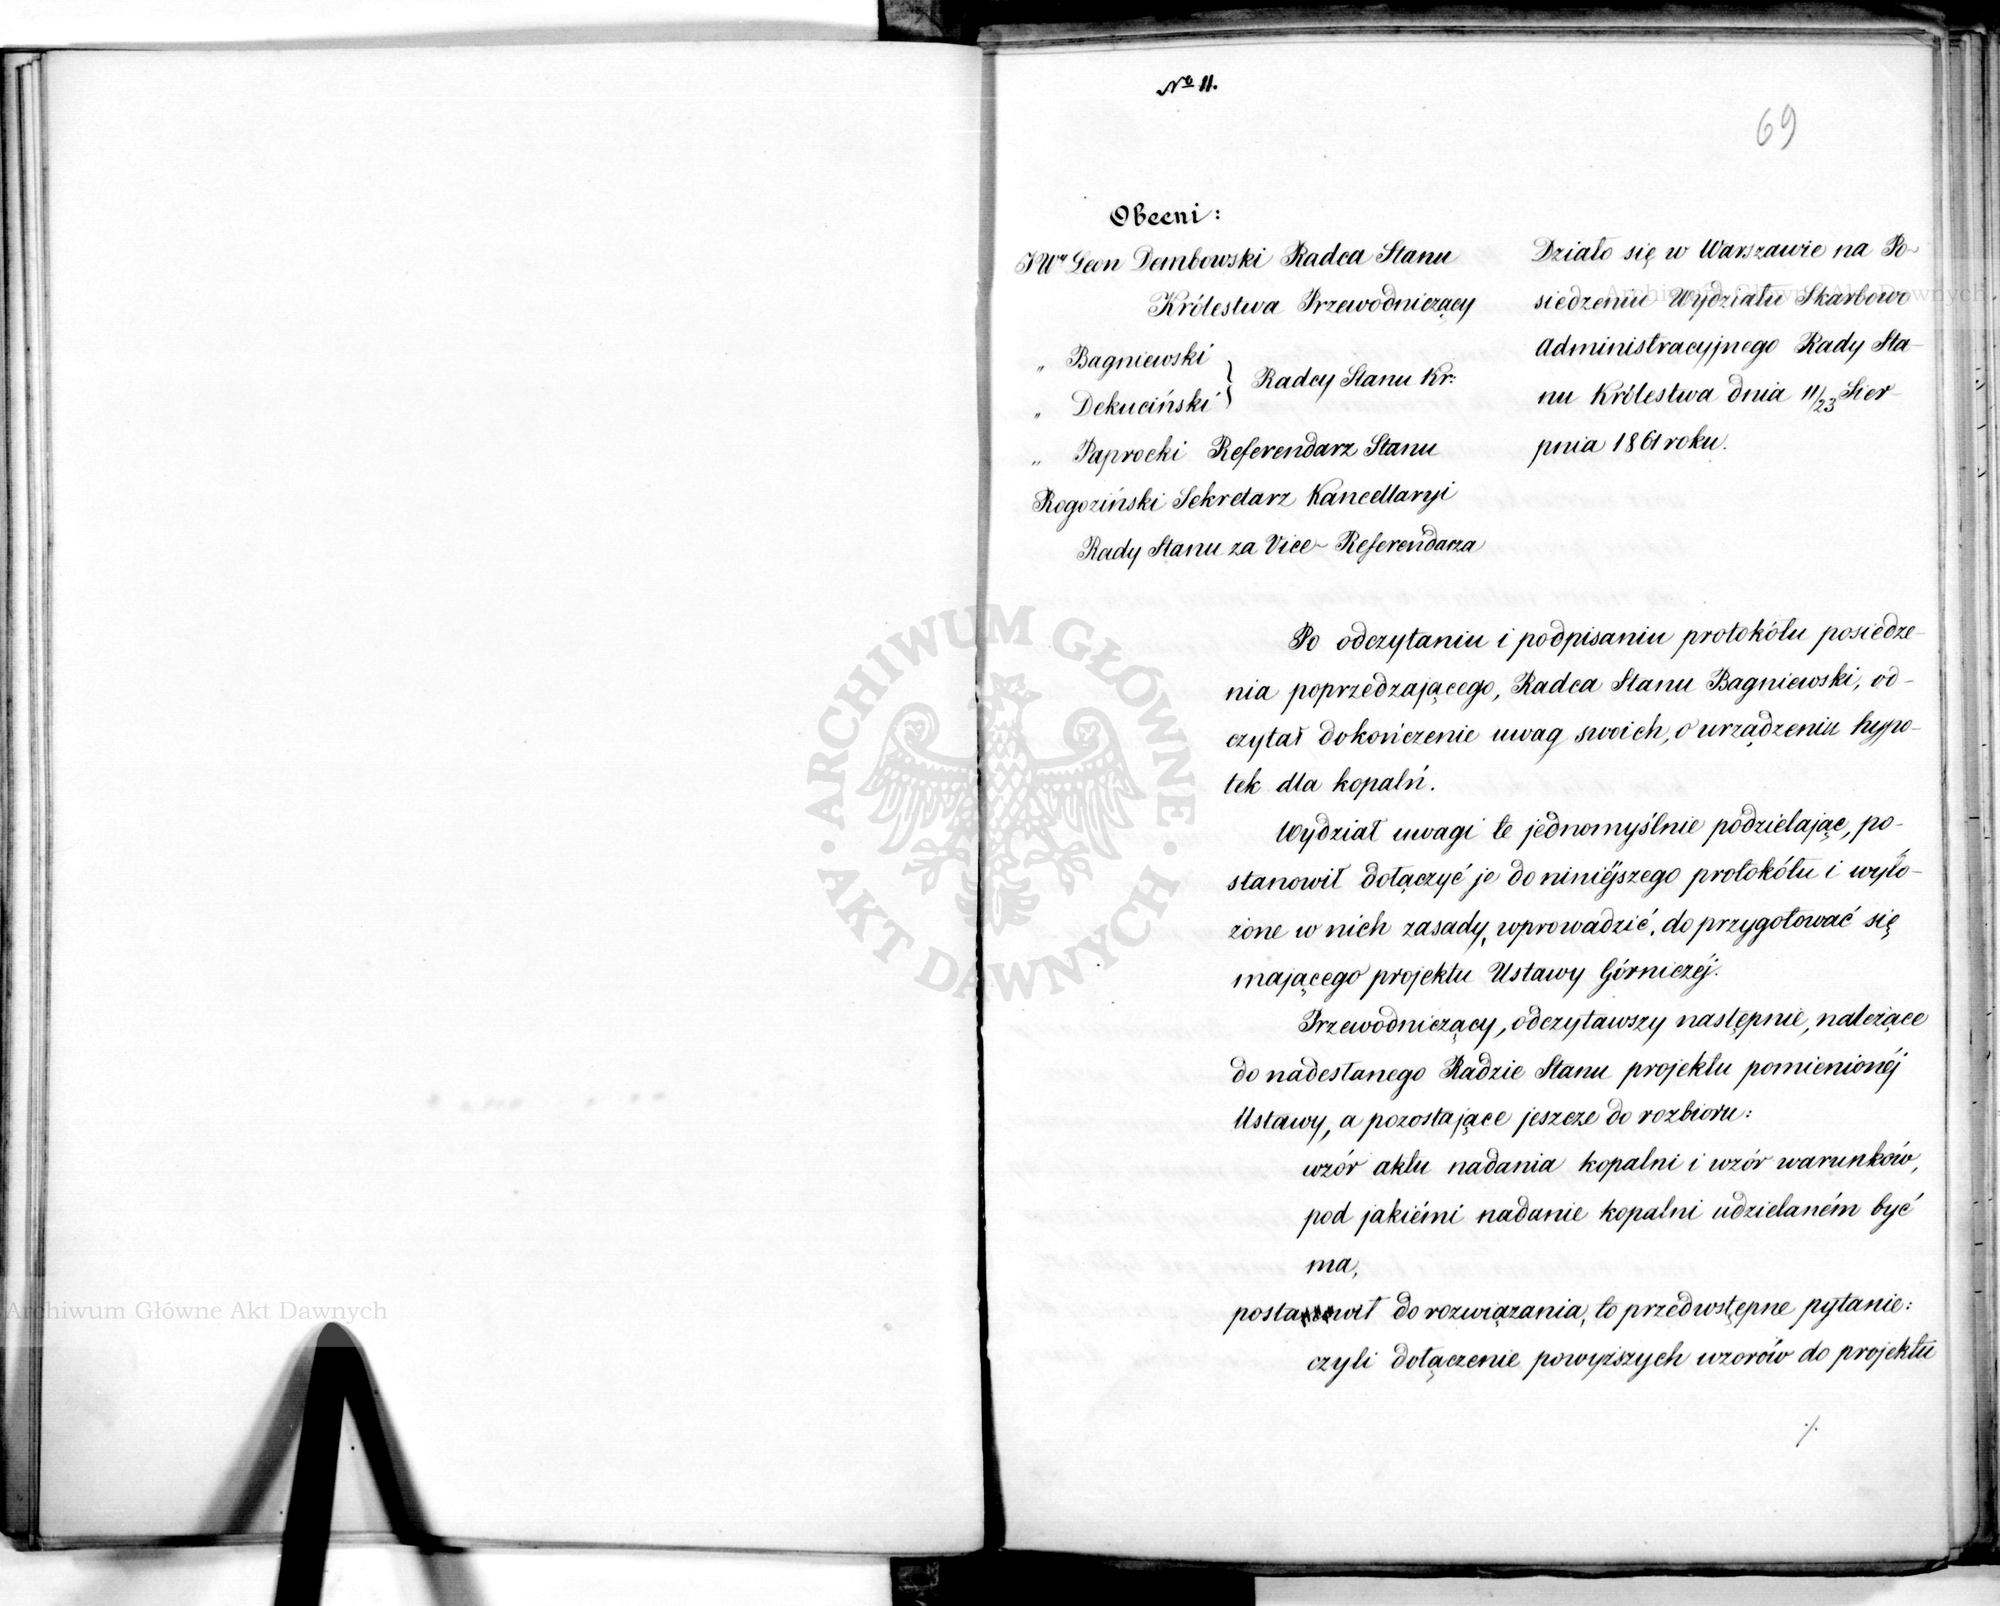 № 11.
69
Obecni:
JWny Leon Dembowski Radca Stanu
Królestwa Przewodniczący
„ Bagniewski
„ Dekuciński
} Radcy Stanu Kr:
„ Paprocki Referendarz Stanu
Rogoziński Sekretarz Kancellaryi
Rady Stanu za Vice-Referendarza
Działo się w Warszawie na Po-
siedzeniu Wydziału Skarbowo
Administracyjnego Rady Sta-
nu Królestwa dnia 11/23 Sier-
pnia 1861 roku.
Po odczytaniu i podpisaniu protokółu posiedze-
nia poprzedzającego, Radca Stanu Bagniewski, od-
czytał dokończenie uwag swoich, o urządzeniu hypo-
tek dla kopalń.
Wydział uwagi te jednomyślnie podzielając, po-
stanowił dołączyć je do niniéjszego protokółu i wyło-
żone w nich zasady, wprowadzić, do przygotować się
mającego projektu Ustawy Górniczéj.
Przewodniczący, odczytawszy następnie, należące
do nadesłanego Radzie Stanu projektu pomienionéj
Ustawy, a pozostające jeszcze do rozbioru:
wzór aktu nadania kopalni i wzór warunków,
pod jakiémi nadanie kopalni udzielaném być
ma,
postanowił do rozwiązania, to przedwstępne pytanie:
czyli dołączenie powyższych wzorów do projektu
./.
ARCHIWUM GŁÓWNE · AKT DAWNYCH ·
Archiwum Główne Akt Dawnych
Archiwum Główne Akt Dawnych